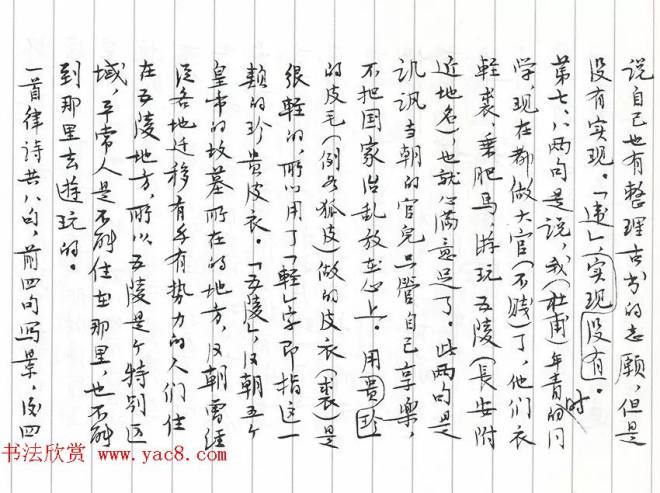 说自己也有整理古书的志愿，但是
没有实现。「违」，实现没有。
第七、八两句是说，我（杜甫）年青时的同
学，现在都做大官（不贱）了，他们衣
轻裘，乘肥马，游玩五陵（长安附
近地名），也就心满意足了。此两句是
讥讽当朝的官儿只管自己享乐，
不把国家治乱放在心上。用贵珍
的皮毛（例如狐皮）做的皮衣（裘）是
很轻的，所以用了「轻」字即指这一
类的珍贵皮衣。「五陵」，汉朝五个
皇帝的坟墓所在的地方，汉朝曾经
从各地迁移有钱有势力的人们住
在五陵地方，所以五陵是个特别区
域，平常人是不能住在那里，也不能
到那里去游玩的。
一首律诗共八句，前四句写景，后四
书法欣赏 www.yac8.com